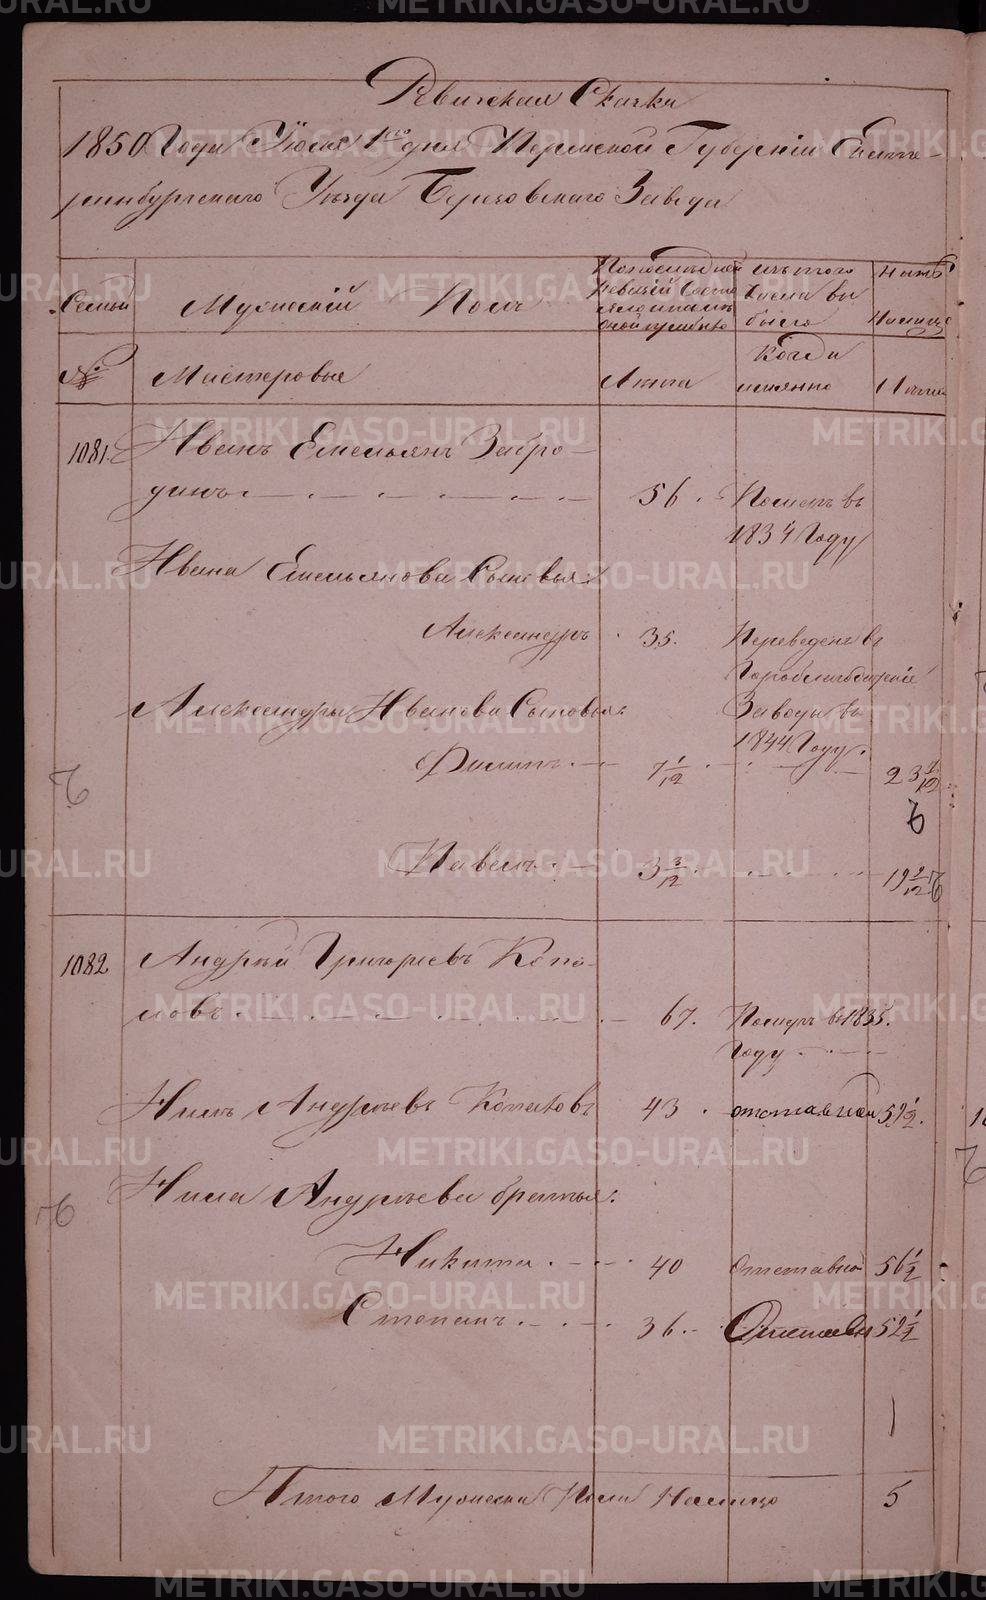 Ревижская Скаска
1850 Года Июля 1го дня Пермской Губерніи Екате-
ринбургскаго Уезда Березовскаго Завода
Семьи
Мужескій Полъ
По последней
ревизіи состо
яло и послѣ
оной прибыло
изъ того
числа вы
было
Нынѣ
На лицо
№
Мастеровые
Лѣта
когда
имянно
Лѣта
1081.
Иванъ Емельянъ Забро-
динъ
56.
Померъ въ
1834 Году
Ивана Емельянова Сыновья:
Александръ
35.
Переведенъ въ
Гороблагодацкіе
Заводы въ
1844 Году.
Александры Иванова Сыновья:
Филипъ
7 1/12
23 7/12
Павелъ
3 3/12
19 9/12
1082
Андрей Григорьевъ Копо-
ловъ
67.
Померъ въ 1835.
Году
Нилъ Андреевъ Копаловъ
43.
отставной
59 1/2.
Нила Андреева братья:
Никита
40
Отставной
56 1/2
Степанъ
36.
Отставн
52 1/2
Итого Мужеска Пола На лицо
5
METRIKI.GASO-URAL.RU